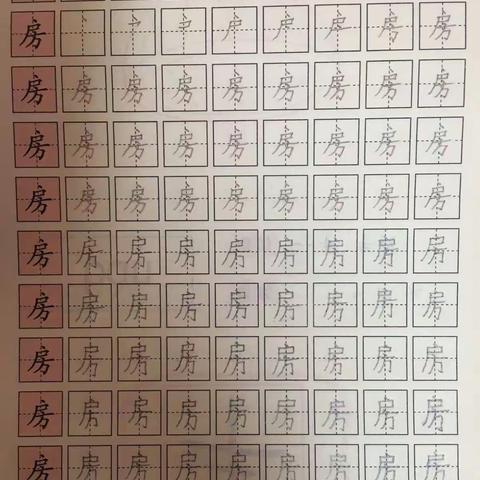 房 丶 亠 ㇕ 户 户 户 房 房
房 房 房 房 房 房 房 房 房
房 房 房 房 房 房 房 房 房
房 房 房 房 房 房 房 房 房
房 房 房 房 房 房 房 房 房
房 房 房 房 房 房 房 房 房
房 房 房 房 房 房 房 房 房
房 房 房 房 房 房 房 房 房
房 房 房 房 房 房 房 房 房